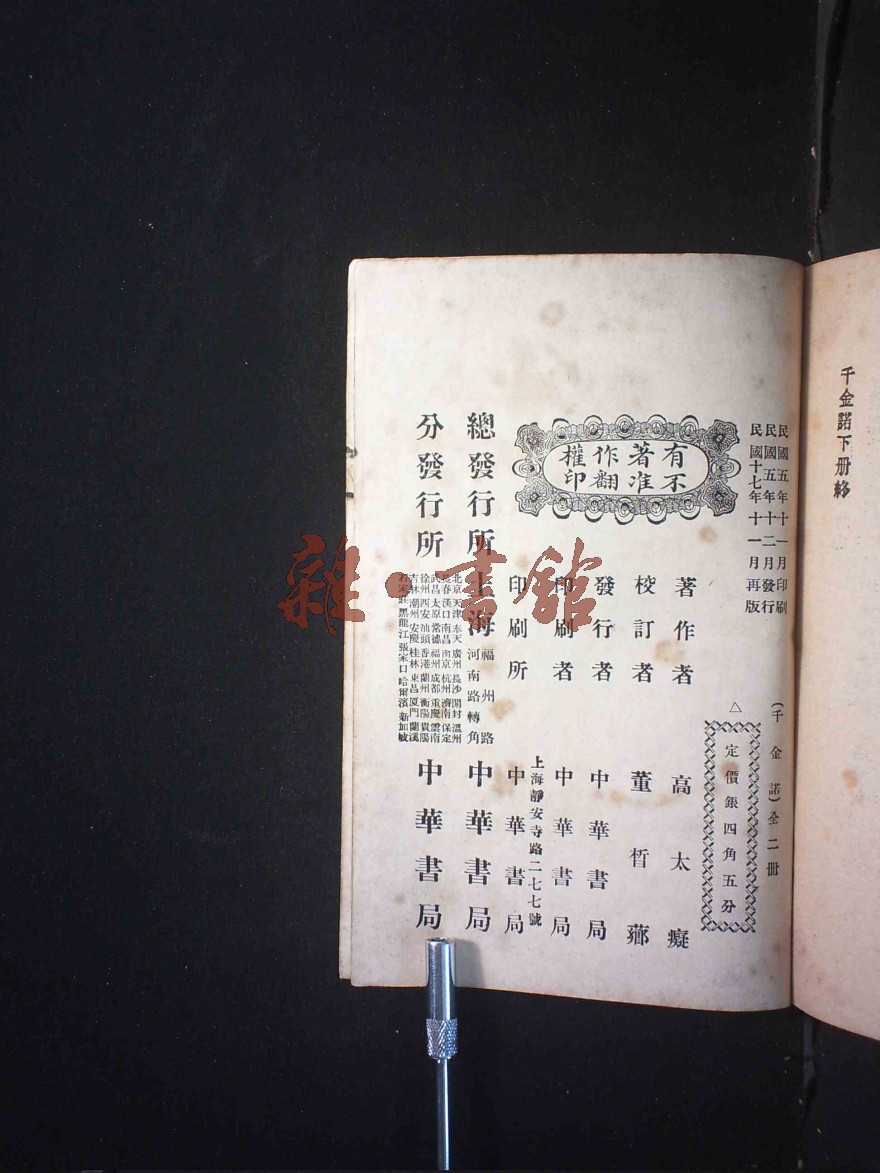 千金諾下册終
民國五年十一月印刷
民國五年十二月發行
民國十七年十一月再版
(千金諾)全二冊
△
定價銀四角五分
有著作權
不准翻印
著作者 高太癡
校訂者 董晳薌
發行者 中華書局
印刷者 中華書局
上海靜安寺路二七七號
印刷所 中華書局
總發行所 上海 福州路
河南路轉角 中華書局
分發行所
北京天津奉天廣州長沙開封溫州
長春漢口南昌南京杭州濟南保定
武昌太原常德福州成都重慶雲南
徐州西安汕頭香港蘭州衡陽貴陽
吉林潮州安慶桂林東昌厦門蘭溪
石家莊黑龍江張家口哈爾濱新加坡
中華書局
雜·書館